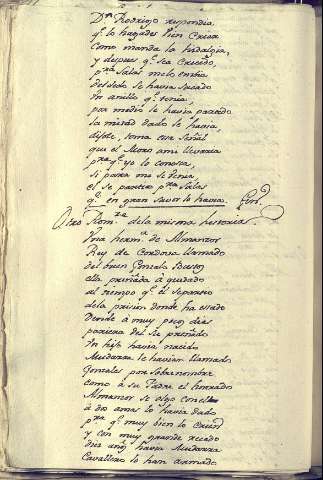 Dn. Rodrigo respondio,
qe. lo hagades bien Creia
como manda la hidalgia,
y despues qe. sea Crecido,
pra. Salas melo enbia
del dedo se havia sacado
Un anillo qe. tenia,
por medio le havia partido
la mitad dado le havia,
dijole, toma esta señal
que el Moro ami llevaria
pra. qe. yo lo conosca,
si para me se venia
el se partio pra. Salas
qe. en gran savor lo havia. Fin.
Otro Romze. dela misma historia.
Una herma. de Almanzor
Rey de Cordova llamado
del buen Gonzalo Bustos
ella preñada à quedado
al tiempo qe. el se partio
dela prision donde ha estado
dende à muy pocos dias
pariera del su preñado
Un hijo havia nacido
Mudarra le havian llamado
Gonzales por sobrenombre
como à su Padre el honrado
Almanzor se olgo con el
à dos amas lo havia dado
pra. qe. muy bien lo crien
y con muy grande recado
diez años havia Mudarra
Cavallero lo han armado